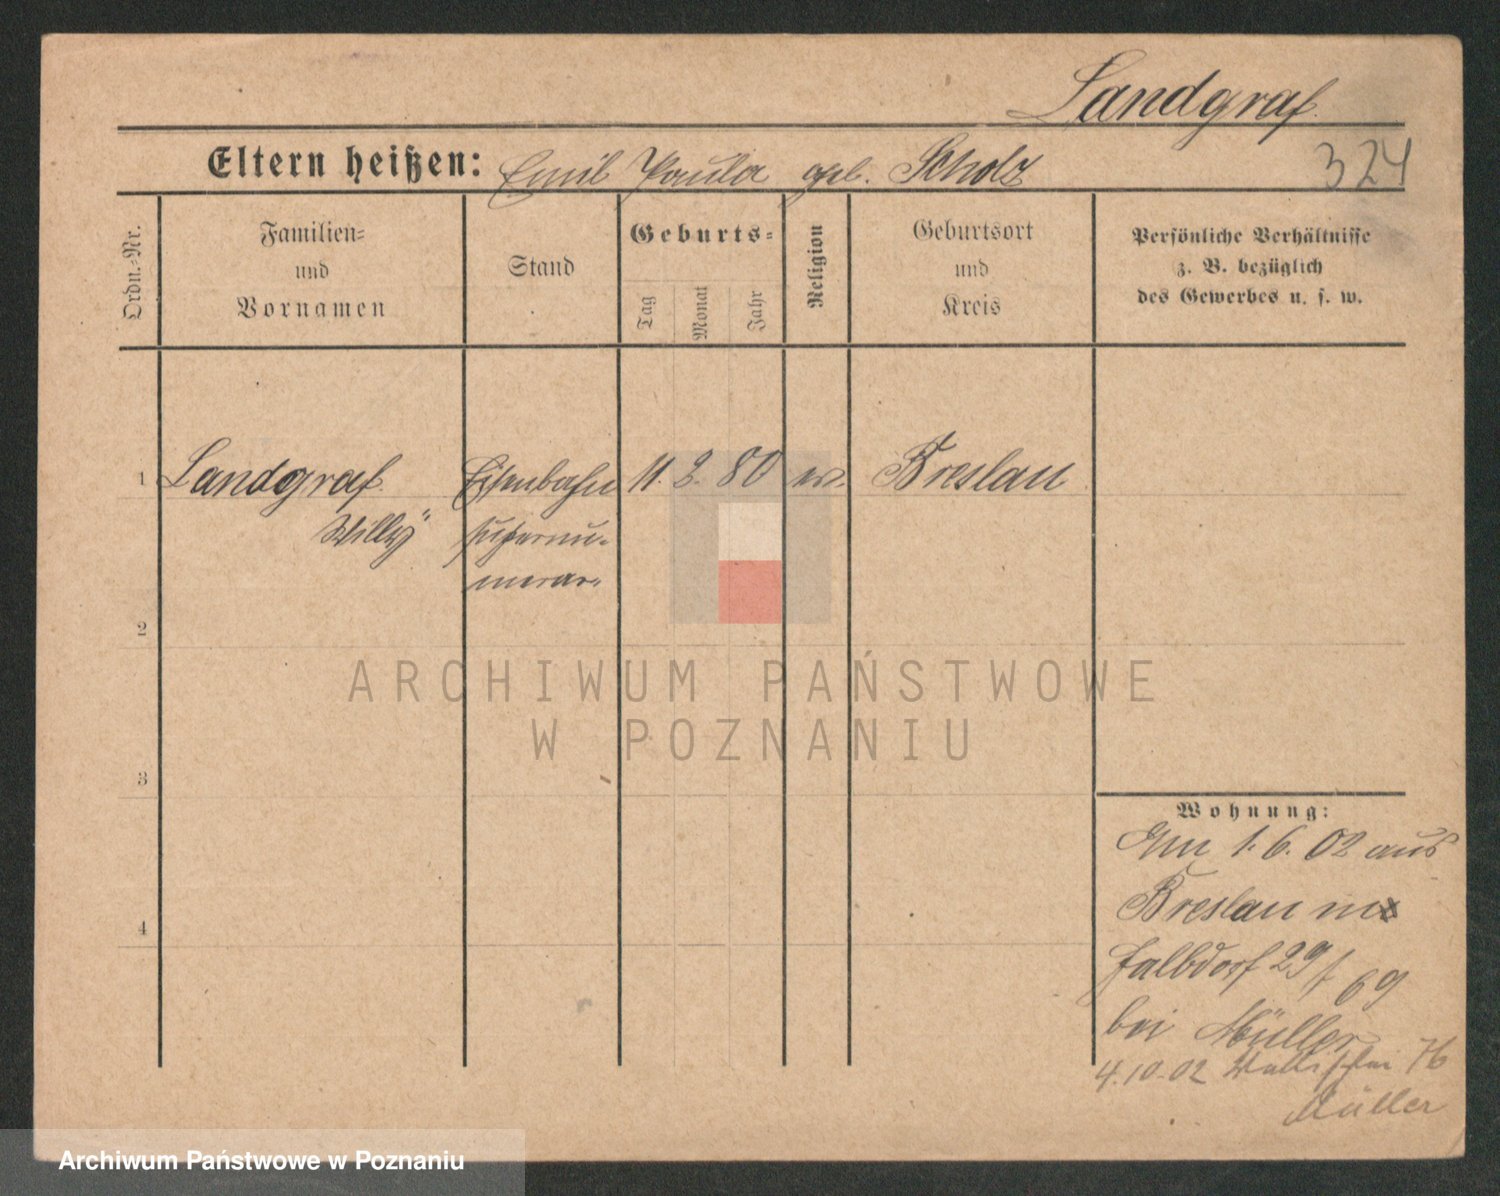 Landgraf.
Eltern heißen: Emil Paula geb. Scholz
324
Ordn.-Nr.
Familien-
und
Vornamen
Stand
Geburts-
Tag
Monat
Jahr
Religion
Geburtsort
und
Kreis
Persönliche Verhältnisse
z. B. bezüglich
des Gewerbes u. s. w.
1 Landgraf. Eisenbahn 11. 2. 80 ev. Breslau
Willy supernu-
merar.
2
ARCHIWUM PAŃSTWOWE
W POZNANIU
3
Wohnung:
Am 1. 6. 02 aus
Breslau
4
29/69
bei Müller
4.10.02 Wallischei 76
Müller
Archiwum Państwowe w Poznaniu